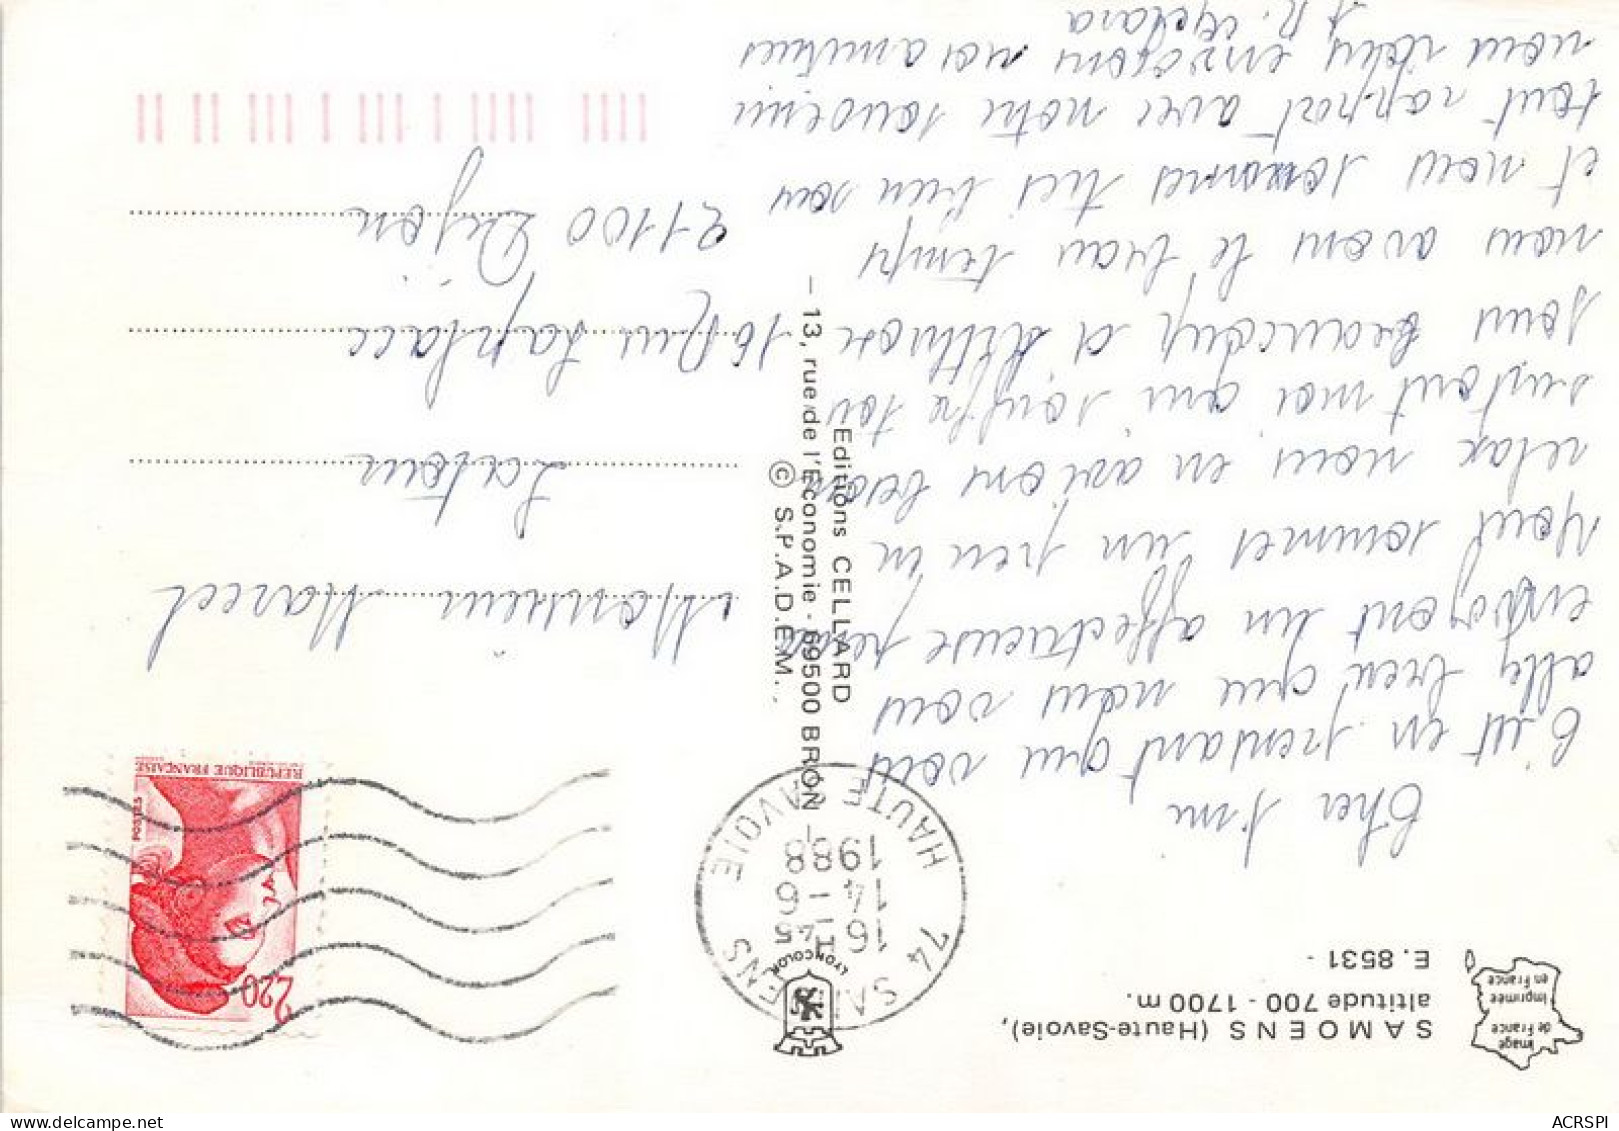 SAMOENS (Haute-Savoie),
altitude 700 - 1700 m.
E. 8531 -
image
de France
imprimée
en France
Cher
C'est en pensant que vous
allez bien que nous vous
envoyons un affectueuse
sommes un peu en
relax nous en avions besoin
surtout moi qui souffre
beaucoup et
nous avons le beau temps
et nous sommes très bien sous
tout rapport avec notre souvenir
nous vous envoyons nos amitiés
Editions CELLARD
- 13, rue de l'Economie - 69500 BRON
© S.P.A.D.E.M.
LYONCOLOR
74 SAMOENS
16 H 45
14 - 6
1988
HAUTE SAVOIE
2,20
POSTES
REPUBLIQUE FRANÇAISE
Monsieur Marcel
Latour
16 Rue Laplace
21100 Dijon
ACRSPI